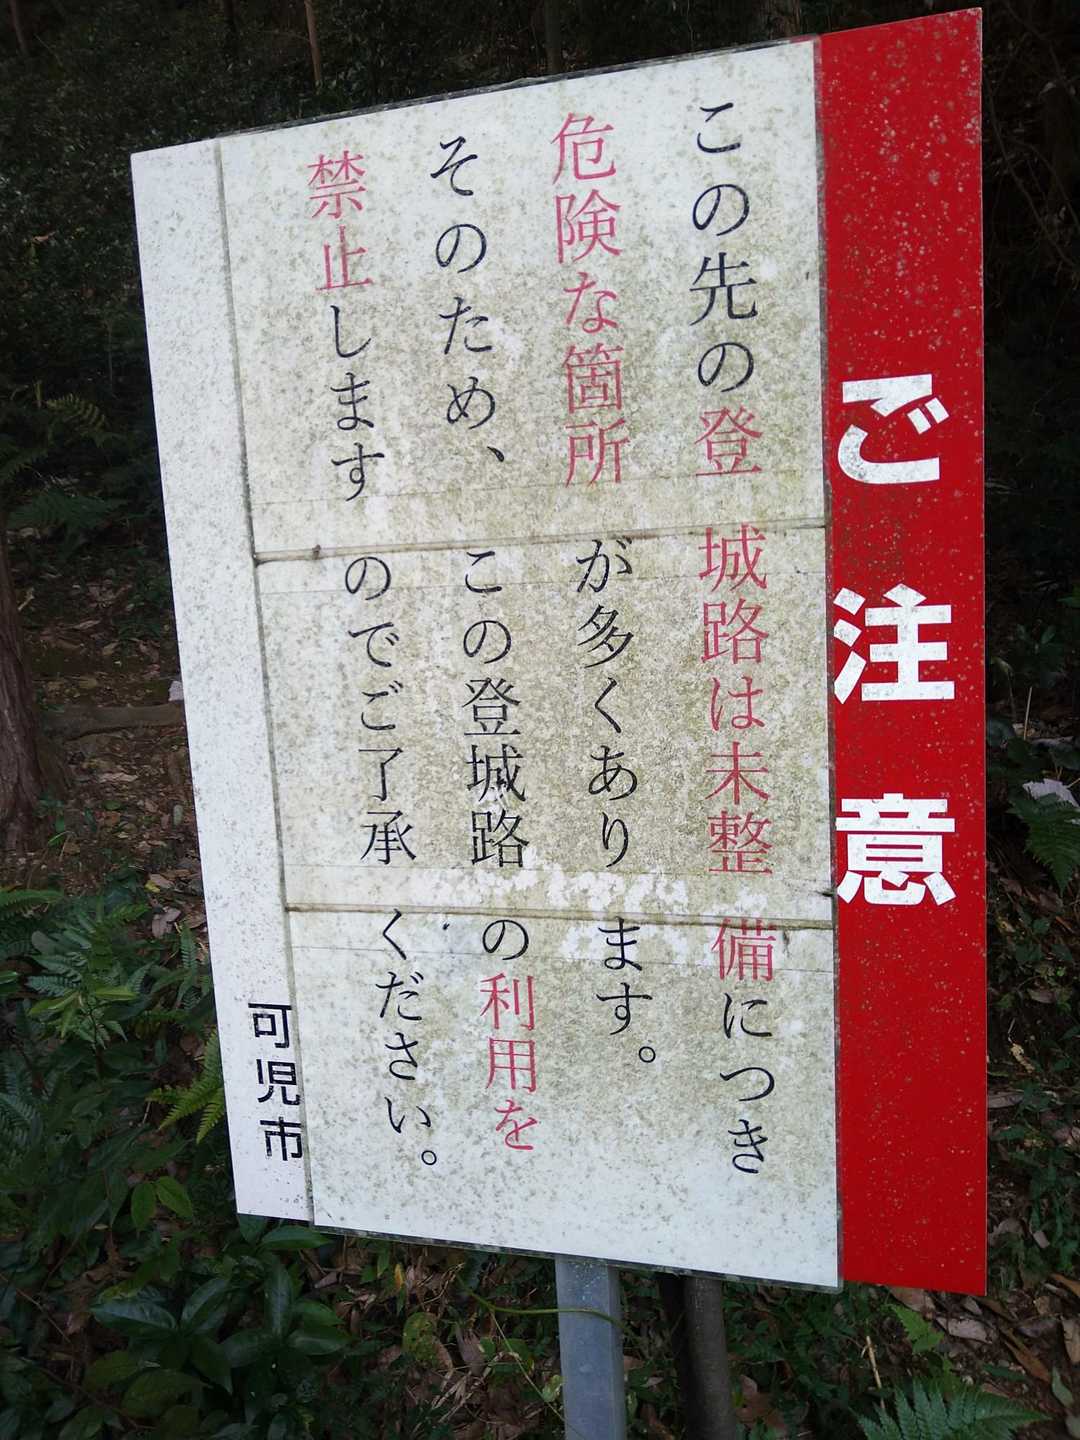 ご注意
この先の登城路は未整備につき
危険な箇所が多くあります。
そのため、この登城路の利用を
禁止しますのでご了承ください。
可児市